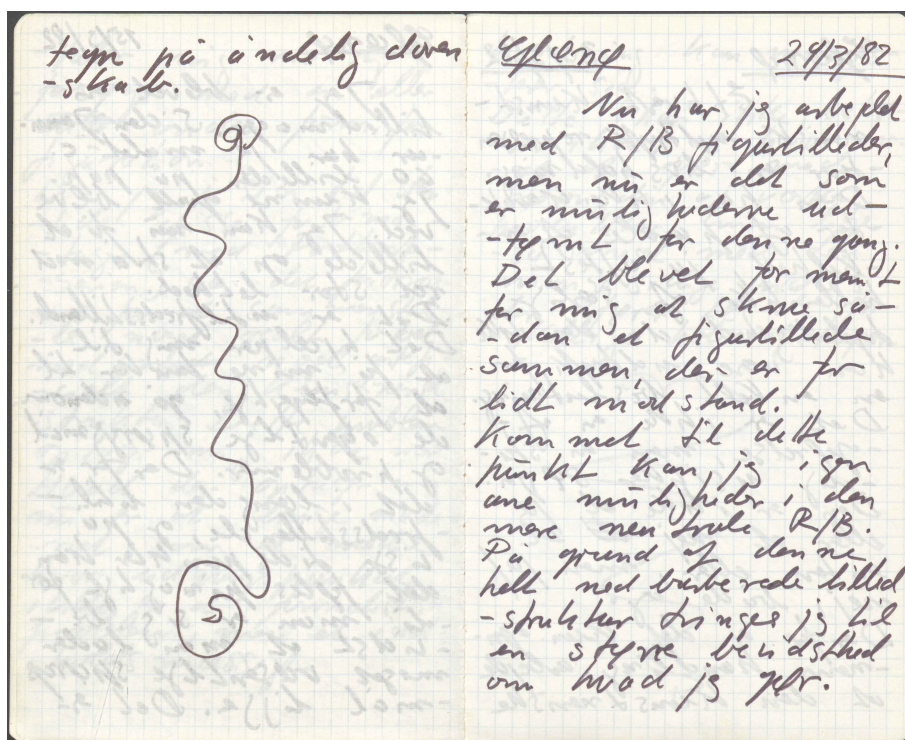 tegn på åndelig doven
-skab.
Gløng 24/3/82
Nu har jeg arbejdet
med R/B figurbilleder,
men nu er det som
er mulighederne ud-
-tømt for denne gang.
Det blevet for nemt
for mig at skrue så-
-dan et figurbillede
sammen, der er for
lidt modstand.
Kommet til dette
punkt kan jeg igen
ane muligheder i den
mere neutrale R/B.
På grund af denne
helt nedbarberede billed
-struktur tvinges jeg til
en større bevidsthed
om hvad jeg gør.